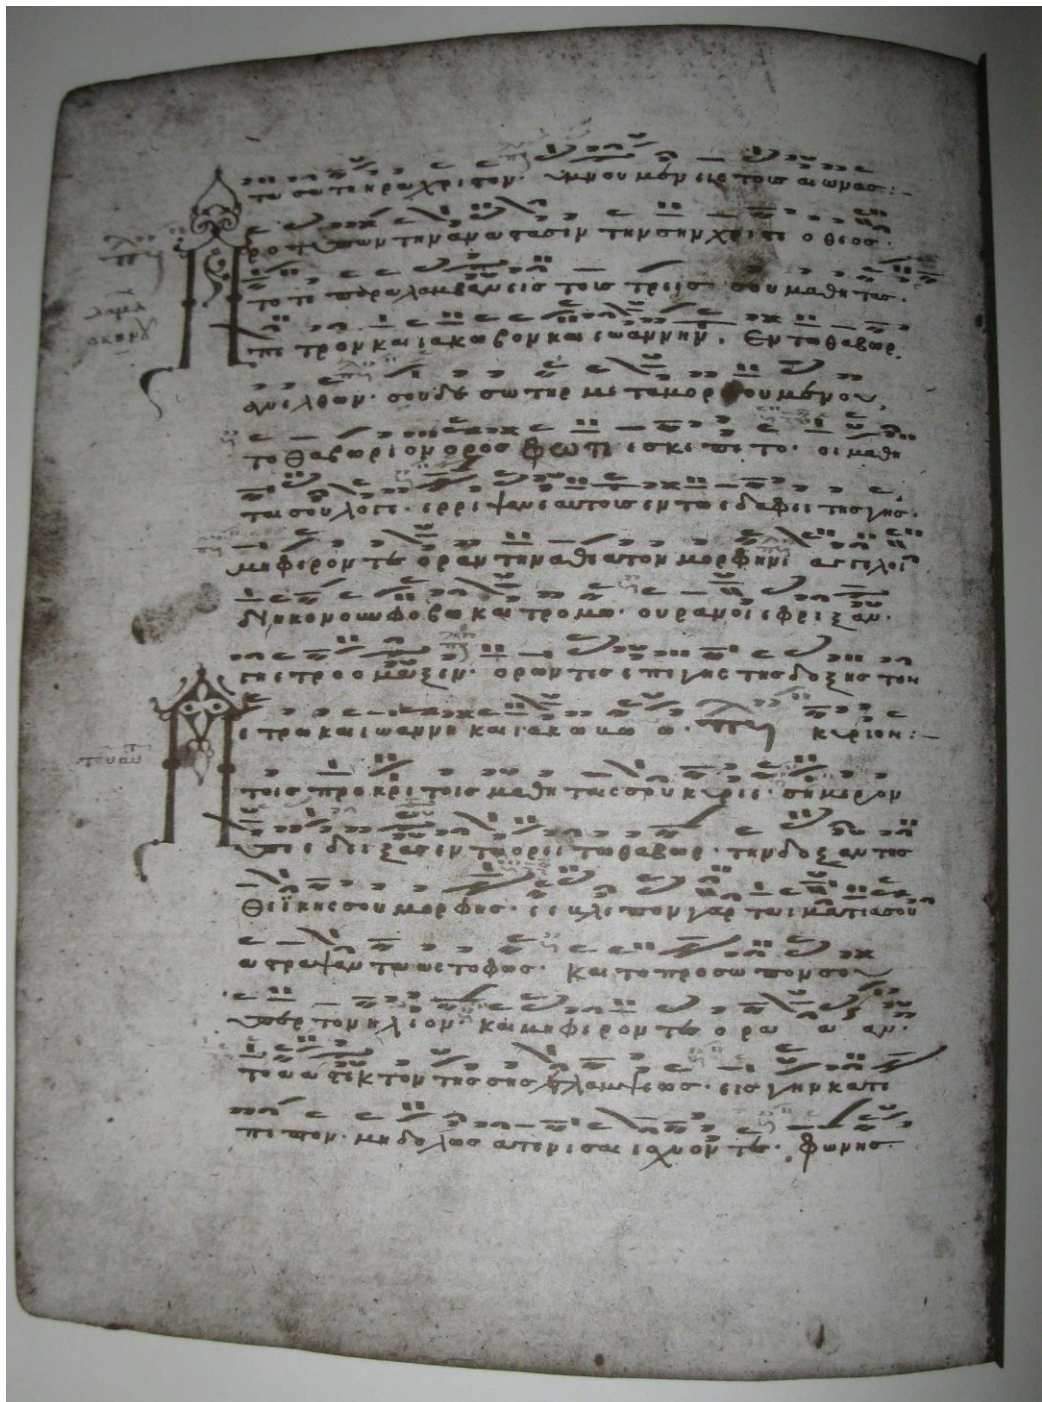 τον σωτηρα χριστον. υμνουμεν εις τους αιωνας:-
Προ του σου των την αναστασιν την σην χριστε ο θεος.
το τε παραλαμβανεις τους τρεις σου μαθητας.
πετρον και ιακωβον και ιωαννην. Εν τω θαβωρ
ανελθων. σου δε σωτηρ μεταμορφουμενου,
το θαβωριον ορος φωτι εσκεπετο. οι μαθη
ται σου λογε. ερριψαν εαυτους εν τω εδαφει της γης.
μη φεροντες οραν την αθεατον μορφην αγγελοι
διηκονουν φοβω και τρομω. ουρανοι εφριξαν.
γη ετρομαξεν. ορωντες επι γης της δοξης τον
κυριον:-
Πετρω και ιωαννη και ιακωβω
τοις προκριτοις μαθηταις σου κυριε. σημερον
υπεδειξας εν τω ορει τω θαβωρ. την δοξαν της
θεικης σου μορφης. εβλεπον γαρ τα ιματια σου
αστραψαντα ως το φως. και το προσωπον σου
υπερ τον ηλιον. και μη φεροντες οραν
το αστεκτον της σης ελλαμψεως. εις γην κατε
πιπτον. μηδολως ατενισαι ισχυοντες. φωνης.